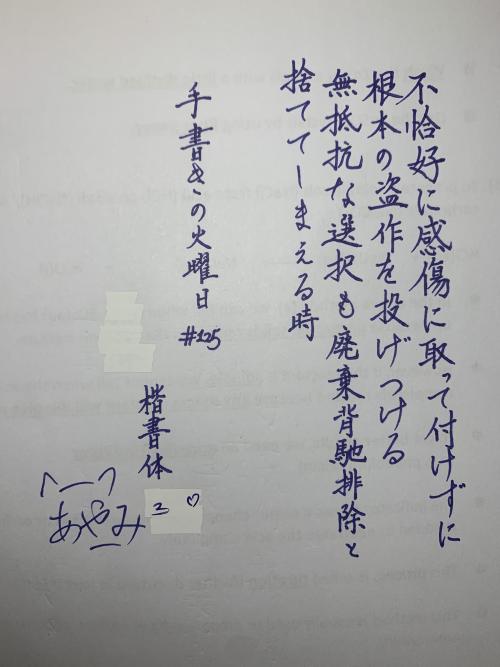 不恰好に感傷に取って付けずに
根本の盗作を投げつける
無抵抗な選択も廃棄背馳排除と
捨ててしまえる時
手書きの火曜日 #125
楷書体
あやみ